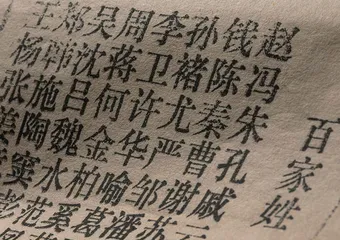 百家姓
赵钱孙李周吴郑王
冯陈褚卫蒋沈韩杨
朱秦尤许何吕施张
孔曹严华金魏陶姜
戚谢邹喻柏水窦
云苏潘葛奚范彭